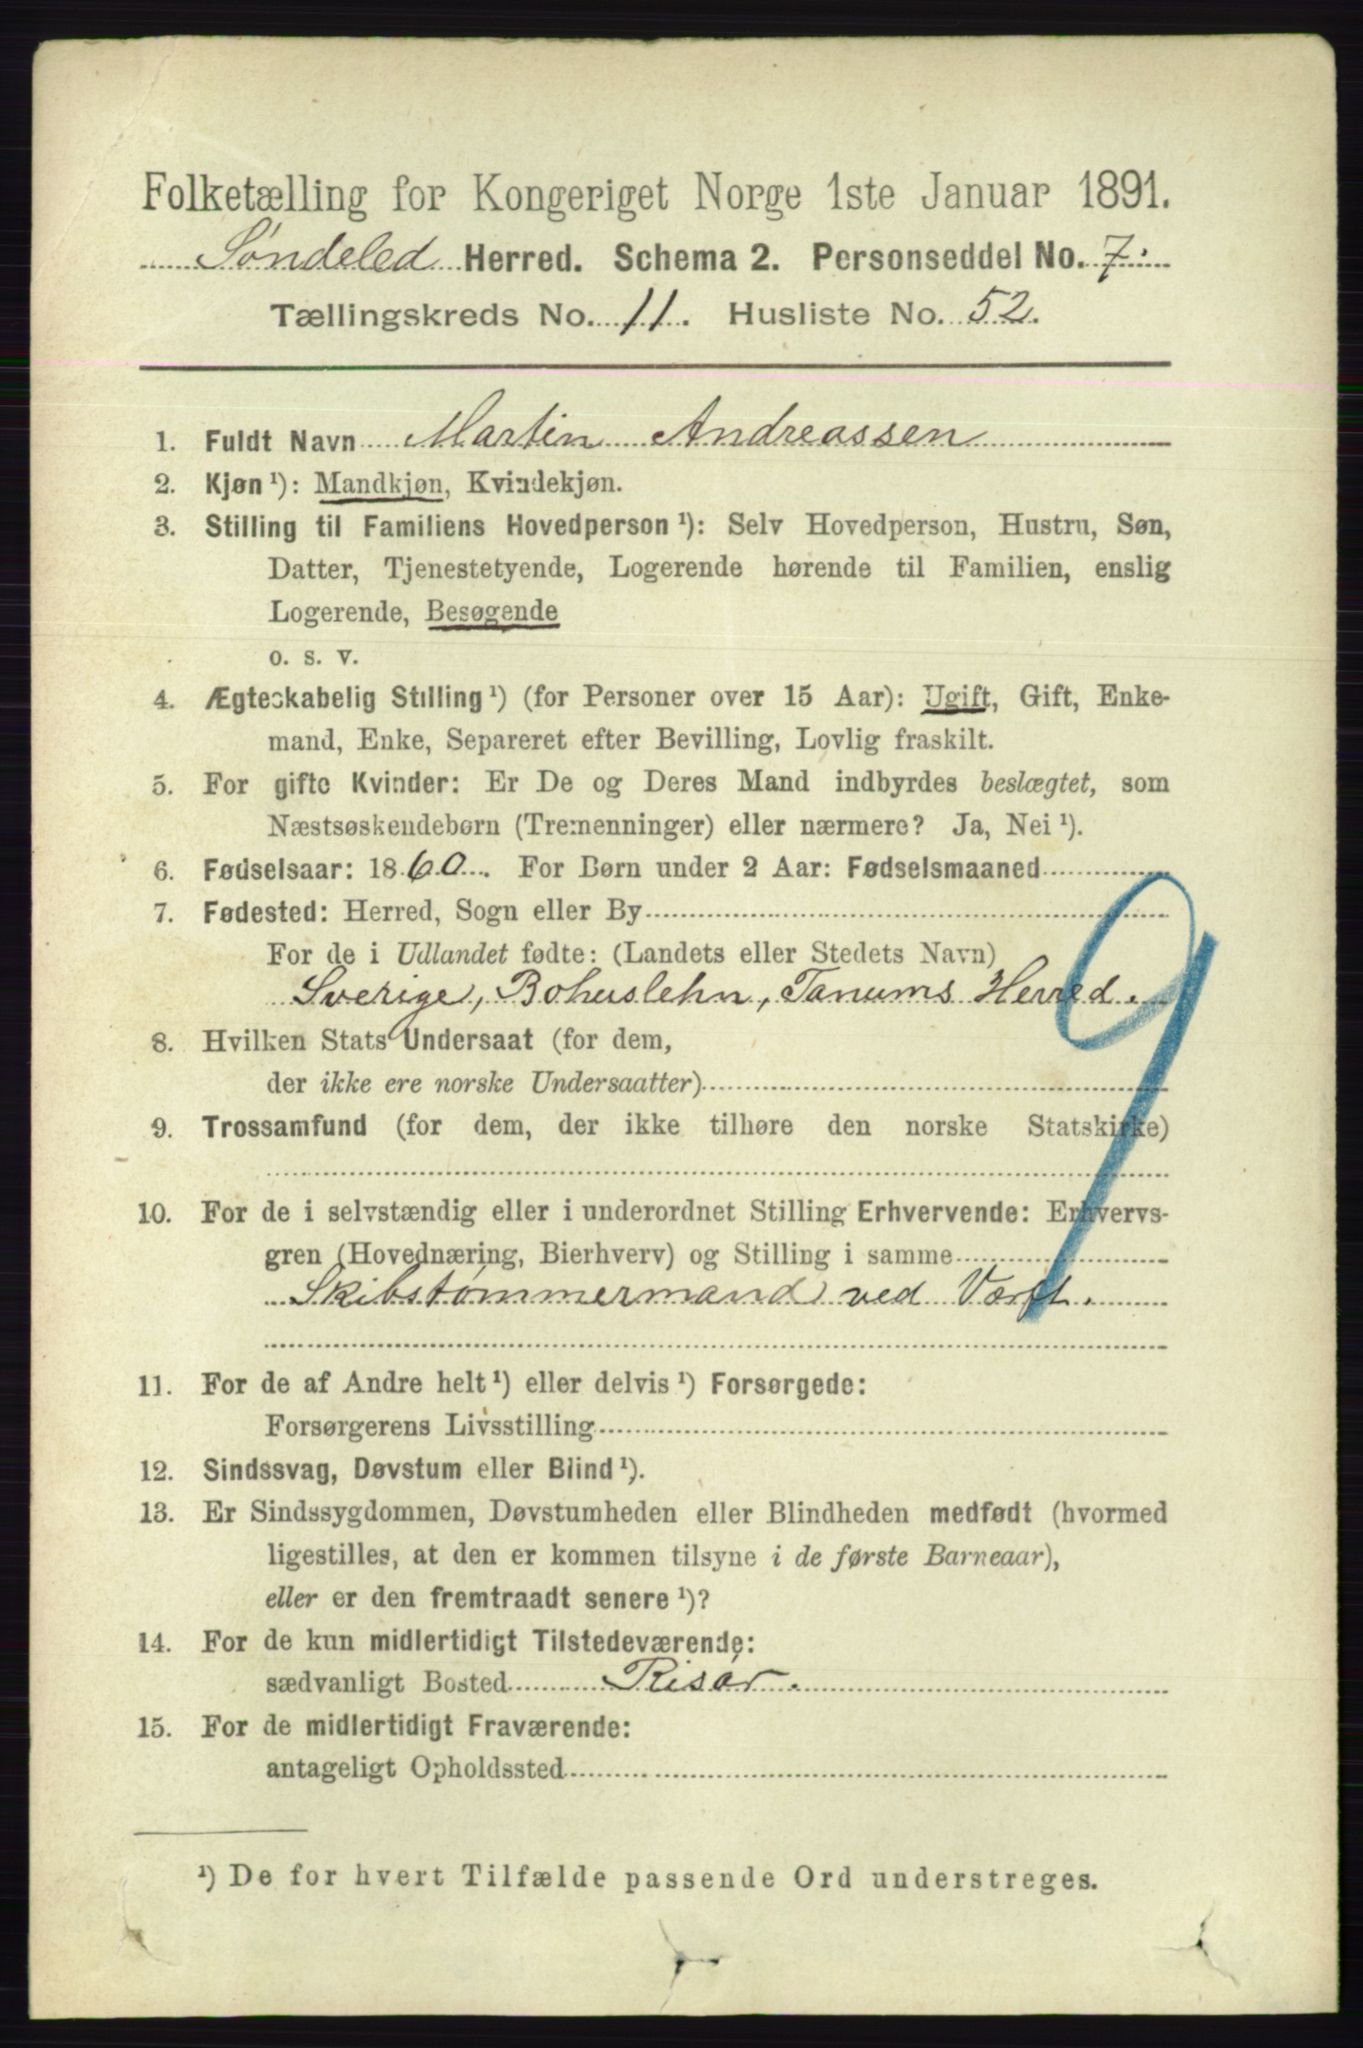 Folketælling for Kongeriget Norge 1ste Januar 1891.
Søndeled Herred. Schema 2. Personseddel No. 7.
Tællingskreds No. 11. Husliste No. 52.
1. Fuldt Navn Martin Andreassen
2. Kjøn ¹): Mandkjøn, Kvindekjøn.
3. Stilling til Familiens Hovedperson ¹): Selv Hovedperson, Hustru, Søn,
Datter, Tjenestetyende, Logerende hørende til Familien, enslig
Logerende, Besøgende
o. s. v.
4. Ægteskabelig Stilling ¹) (for Personer over 15 Aar): Ugift, Gift, Enke-
mand, Enke, Separeret efter Bevilling, Lovlig fraskilt.
5. For gifte Kvinder: Er De og Deres Mand indbyrdes beslægtet, som
Næstsøskendebørn (Tremenninger) eller nærmere? Ja, Nei ¹).
6. Fødselsaar: 1860. For Børn under 2 Aar: Fødselsmaaned
7. Fødested: Herred, Sogn eller By
For de i Udlandet fødte: (Landets eller Stedets Navn)
Sverige, Bohuslehn, Tanums Herred.
8. Hvilken Stats Undersaat (for dem,
der ikke ere norske Undersaatter)
9. Trossamfund (for dem, der ikke tilhøre den norske Statskirke)
10. For de i selvstændig eller i underordnet Stilling Erhvervende: Erhvervs-
gren (Hovednæring, Bierhverv) og Stilling i samme
Skibstømmermand ved Værft.
11. For de af Andre helt ¹) eller delvis ¹) Forsørgede:
Forsørgerens Livsstilling
12. Sindssvag, Døvstum eller Blind ¹).
13. Er Sindssygdommen, Døvstumheden eller Blindheden medfødt (hvormed
ligestilles, at den er kommen tilsyne i de første Barneaar),
eller er den fremtraadt senere ¹)?
14. For de kun midlertidigt Tilstedeværende:
sædvanligt Bosted Risør.
15. For de midlertidigt Fraværende:
antageligt Opholdssted
¹) De for hvert Tilfælde passende Ord understreges.
9